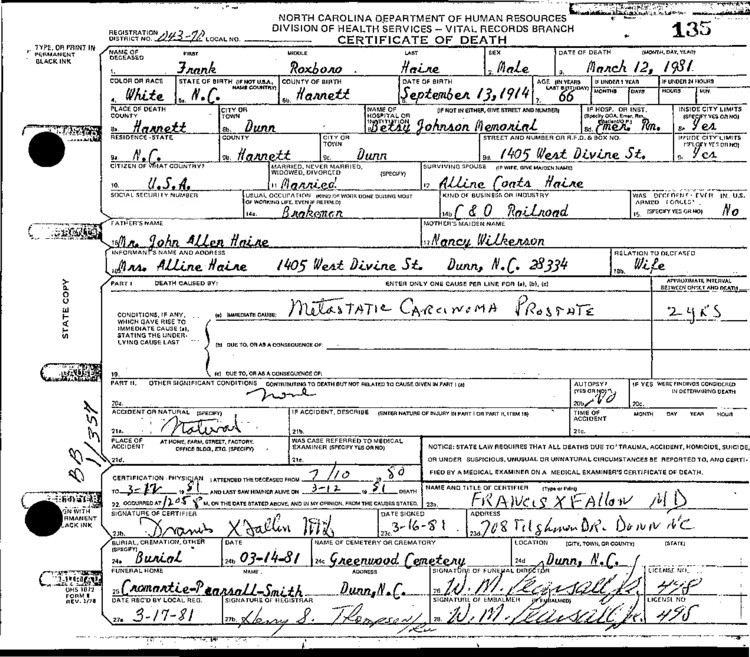 NORTH CAROLINA DEPARTMENT OF HUMAN RESOURCES
DIVISION OF HEALTH SERVICES – VITAL RECORDS BRANCH
CERTIFICATE OF DEATH
135
REGISTRATION DISTRICT NO. 043-78 LOCAL NO.
TYPE, OR PRINT IN PERMANENT BLACK INK
NAME OF DECEASED FIRST MIDDLE LAST SEX DATE OF DEATH (MONTH, DAY, YEAR)
1. Frank Roxboro Haire 2. Male 3. March 12, 1981
COLOR OR RACE STATE OF BIRTH (IF NOT U.S.A., NAME COUNTRY) COUNTY OF BIRTH DATE OF BIRTH AGE (IN YEARS LAST BIRTHDAY) IF UNDER 1 YEAR IF UNDER 24 HOURS
MONTHS DAYS HOURS MIN.
4. White 5a. N.C. 5b. Harnett 6. September 13, 1914 7. 66
PLACE OF DEATH COUNTY CITY OR TOWN NAME OF HOSPITAL OR INSTITUTION (IF NOT IN EITHER, GIVE STREET AND NUMBER) IF HOSP. OR INST. INSIDE CITY LIMITS (SPECIFY YES OR NO)
8a. Harnett 8b. Dunn 8c. Betsy Johnson Memorial 8d. Emer. Rm. 8e. Yes
RESIDENCE-STATE COUNTY CITY OR TOWN STREET AND NUMBER OR R.F.D. & BOX NO. INSIDE CITY LIMITS (SPECIFY YES OR NO)
9a. N.C. 9b. Harnett 9c. Dunn 9d. 1405 West Divine St. 9e. Yes
CITIZEN OF WHAT COUNTRY? MARRIED, NEVER MARRIED, WIDOWED, DIVORCED (SPECIFY) SURVIVING SPOUSE (IF WIFE, GIVE MAIDEN NAME)
10. U.S.A. 11. Married 12. Alline Coats Haire
SOCIAL SECURITY NUMBER USUAL OCCUPATION (KIND OF WORK DONE DURING MOST OF WORKING LIFE, EVEN IF RETIRED) KIND OF BUSINESS OR INDUSTRY WAS DECEDENT EVER IN U.S. ARMED FORCES? (SPECIFY YES OR NO)
14a. Brakeman 14b. C & O Railroad 15. No
FATHER'S NAME MOTHER'S MAIDEN NAME
16. Mr. John Allen Haire 17. Nancy Wilkerson
INFORMANT'S NAME AND ADDRESS RELATION TO DECEASED
18a. Mrs. Alline Haire 1405 West Divine St. Dunn, N.C. 28334 18b. Wife
PART I DEATH CAUSED BY: ENTER ONLY ONE CAUSE PER LINE FOR (a), (b), (c) APPROXIMATE INTERVAL BETWEEN ONSET AND DEATH
STATE COPY
CONDITIONS, IF ANY, WHICH GAVE RISE TO IMMEDIATE CAUSE (a), STATING THE UNDERLYING CAUSE LAST
(a) IMMEDIATE CAUSE: Metastatic Carcinoma Prostate 2 yrs
(b) DUE TO, OR AS A CONSEQUENCE OF:
19. (c) DUE TO, OR AS A CONSEQUENCE OF:
PART II. OTHER SIGNIFICANT CONDITIONS CONTRIBUTING TO DEATH BUT NOT RELATED TO CAUSE GIVEN IN PART I (a) AUTOPSY? (YES OR NO) IF YES WERE FINDINGS CONSIDERED IN DETERMINING DEATH
20a. none 20b. No 20c.
ACCIDENT OR NATURAL (SPECIFY) IF ACCIDENT, DESCRIBE (ENTER NATURE OF INJURY IN PART I OR PART II, ITEM 19) TIME OF ACCIDENT MONTH DAY YEAR HOUR
21a. Natural 21b. 21c.
BB 11354
PLACE OF ACCIDENT AT HOME, FARM, STREET, FACTORY, OFFICE BLDG., ETC. (SPECIFY) WAS CASE REFERRED TO MEDICAL EXAMINER (SPECIFY YES OR NO)
21d. 21e.
NOTICE: STATE LAW REQUIRES THAT ALL DEATHS DUE TO TRAUMA, ACCIDENT, HOMICIDE, SUICIDE,
OR UNDER SUSPICIOUS, UNUSUAL OR UNNATURAL CIRCUMSTANCES BE REPORTED TO, AND CERTI-
FIED BY A MEDICAL EXAMINER ON A MEDICAL EXAMINER'S CERTIFICATE OF DEATH.
CERTIFICATION: PHYSICIAN I ATTENDED THE DECEASED FROM 7/10 80
TO 3-12 19 81 AND LAST SAW HIM/HER ALIVE ON 3-12 19 81 DEATH
22. OCCURRED AT 1205 P M. ON THE DATE STATED ABOVE, AND IN MY OPINION, FROM THE CAUSES STATED.
NAME AND TITLE OF CERTIFIER (Type or Print)
23a. FRANCIS X FALLON MD
SIGNATURE OF CERTIFIER DATE SIGNED ADDRESS
23b. Francis X Fallon MD 23c. 3-16-81 23d. 708 Tilghman DR. Dunn NC
BURIAL, CREMATION, OTHER (SPECIFY) DATE NAME OF CEMETERY OR CREMATORY LOCATION (CITY, TOWN, OR COUNTY) (STATE)
24a. Burial 24b. 03-14-81 24c. Greenwood Cemetery 24d. Dunn, N.C.
FUNERAL HOME NAME ADDRESS SIGNATURE OF FUNERAL DIRECTOR LICENSE NO.
25. Cromartie-Pearsall-Smith Dunn, N.C. 26. W. M. Pearsall Jr. 498
DATE REC'D BY LOCAL REG. SIGNATURE OF REGISTRAR SIGNATURE OF EMBALMER (IF EMBALMED) LICENSE NO
27a. 3-17-81 27b. Henry S. Thompson 28. W. M. Pearsall Jr. 498
DHS 1872
FORM 8
REV. 1/78